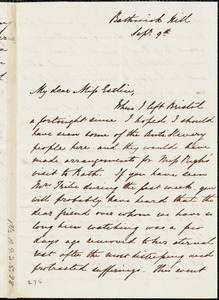 Bathwick Hill
Sept. 9th
My dear Miss Estlin,
When I left Bristol
a fortnight since I hoped I should
have seen some of the Anti Slavery
people here and they would have
made arrangements for Miss Pugh's
visit to Bath. If you have seen
Mrs. Tribe during the past week, you
will probably have heard that the
dear friend one whom we have so
long been watching was a few
days ago removed to his eternal
rest after the most distressing and
protracted sufferings. This event